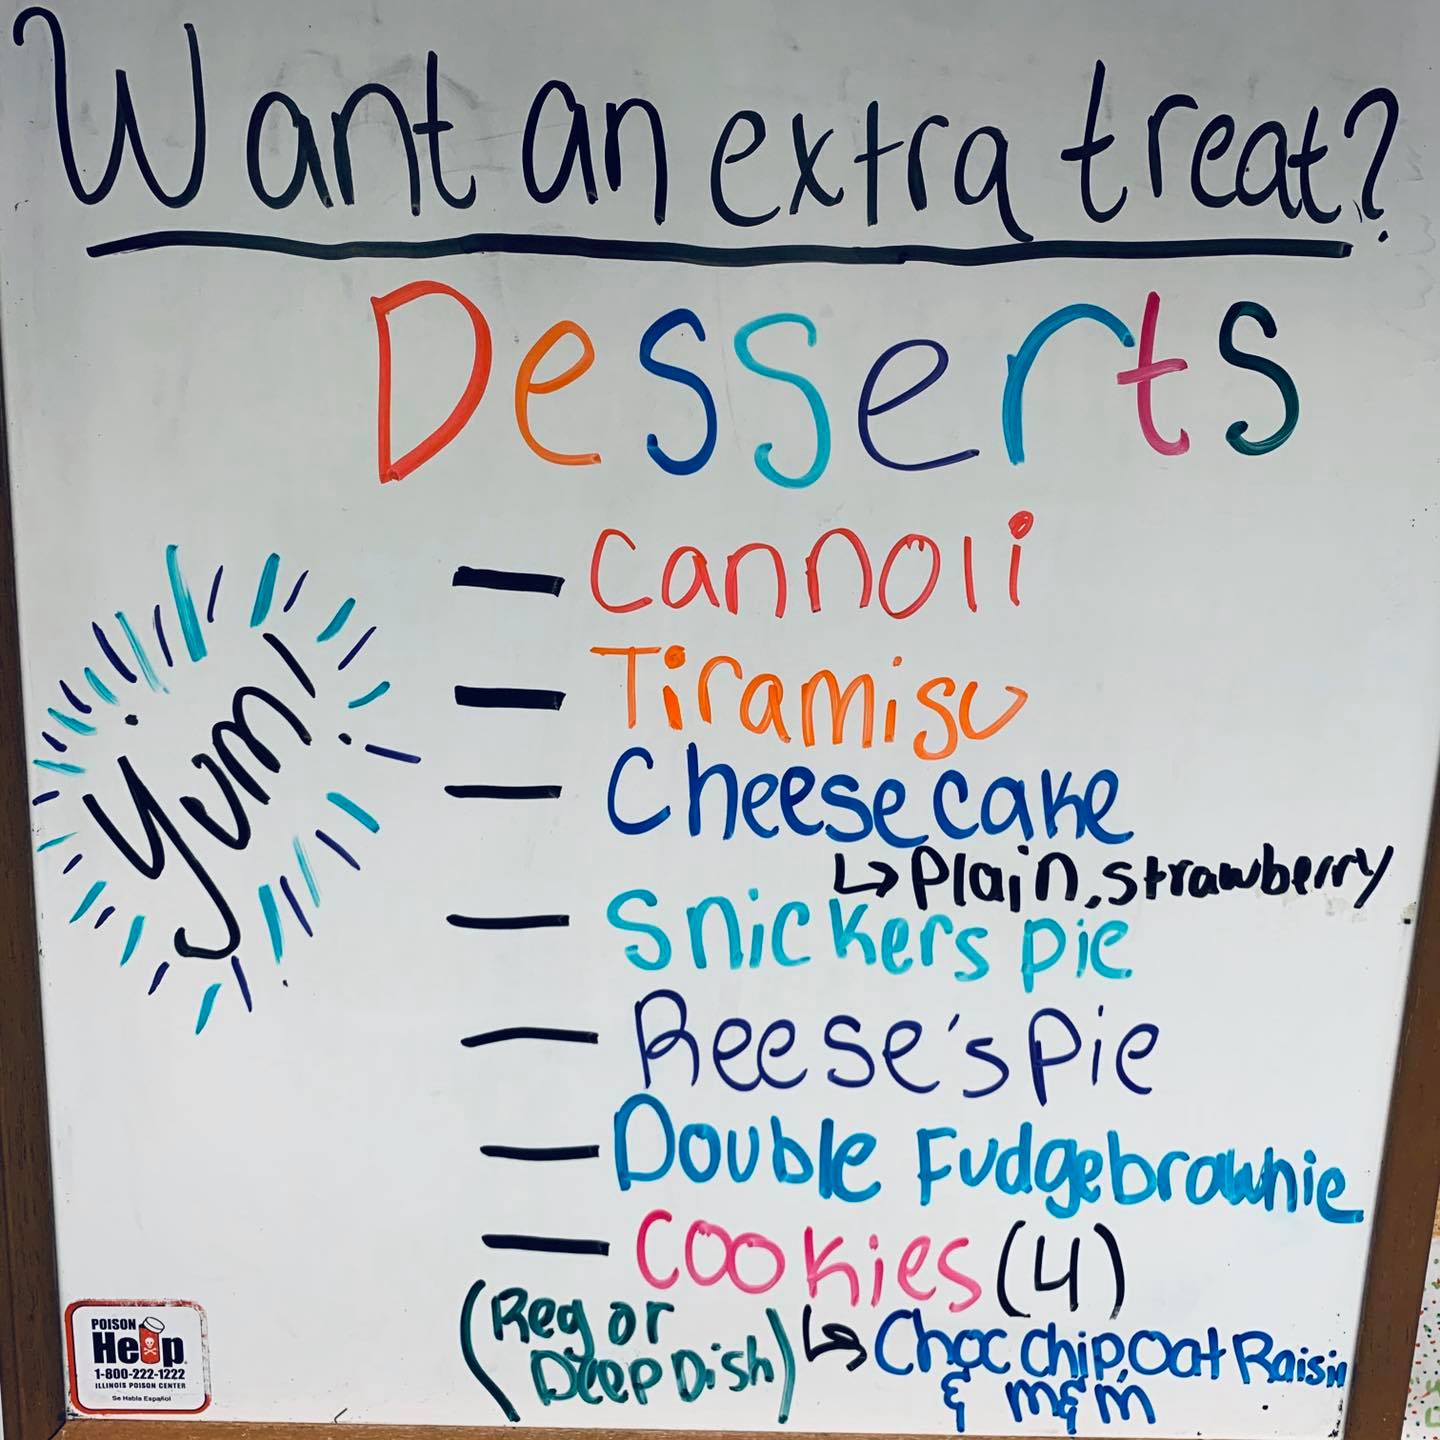 Want an extra treat?
Desserts
Yum!
- Cannoli
- Tiramisu
- Cheesecake
↳ Plain, strawberry
- Snickers pie
- Reese's Pie
- Double Fudge brownie
- Cookies (4)
(Reg or
Deep Dish)
↳ Choc chip, Oat Raisin
& m&m
POISON
Help
1-800-222-1222
ILLINOIS POISON CENTER
Se Habla Español